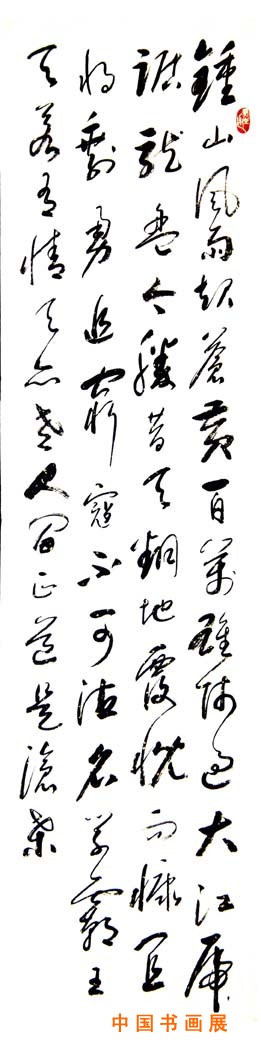 鍾山風雨起蒼黃百萬雄師過大江虎
踞龍盤今勝昔天翻地覆慨而慷宜
将剩勇追窮寇不可沽名學霸王
天若有情天亦老人間正道是滄桑
中国书画展